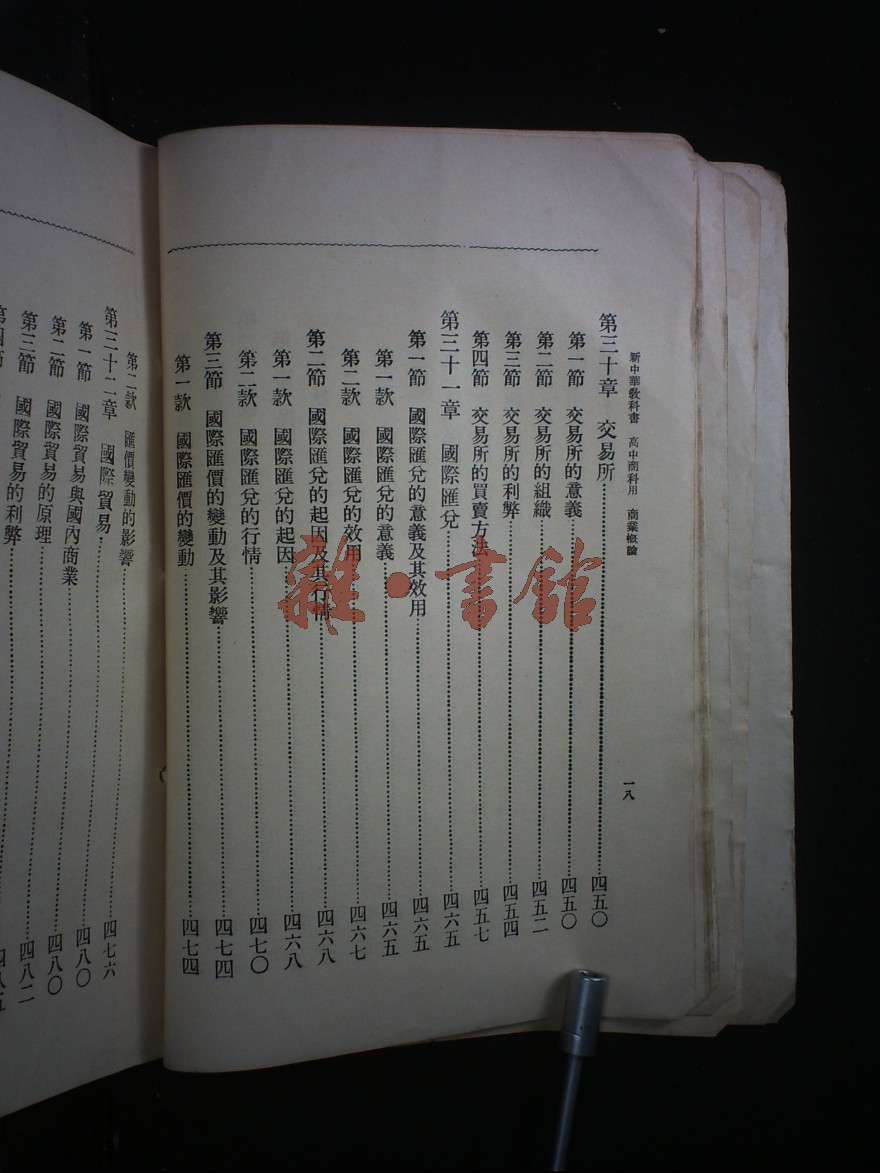 新中華教科書 高中商科用 商業概論
一八
第三十章 交易所……四五〇
第一節 交易所的意義……四五〇
第二節 交易所的組織……四五二
第三節 交易所的利弊……四五四
第四節 交易所的買賣方法……四五七
第三十一章 國際匯兌……四六五
第一節 國際匯兌的意義及其效用……四六五
第一款 國際匯兌的意義……四六五
第二款 國際匯兌的效用……四六七
第二節 國際匯兌的起因及其行情……四六八
第一款 國際匯兌的起因……四六八
第二款 國際匯兌的行情……四七〇
第三節 國際匯價的變動及其影響……四七四
第一款 國際匯價的變動……四七四
第二款 匯價變動的影響……四七六
第三十二章 國際貿易……四八〇
第一節 國際貿易與國內商業……四八〇
第二節 國際貿易的原理……四八二
第三節 國際貿易的利弊……四八五
第四節
雜·書館